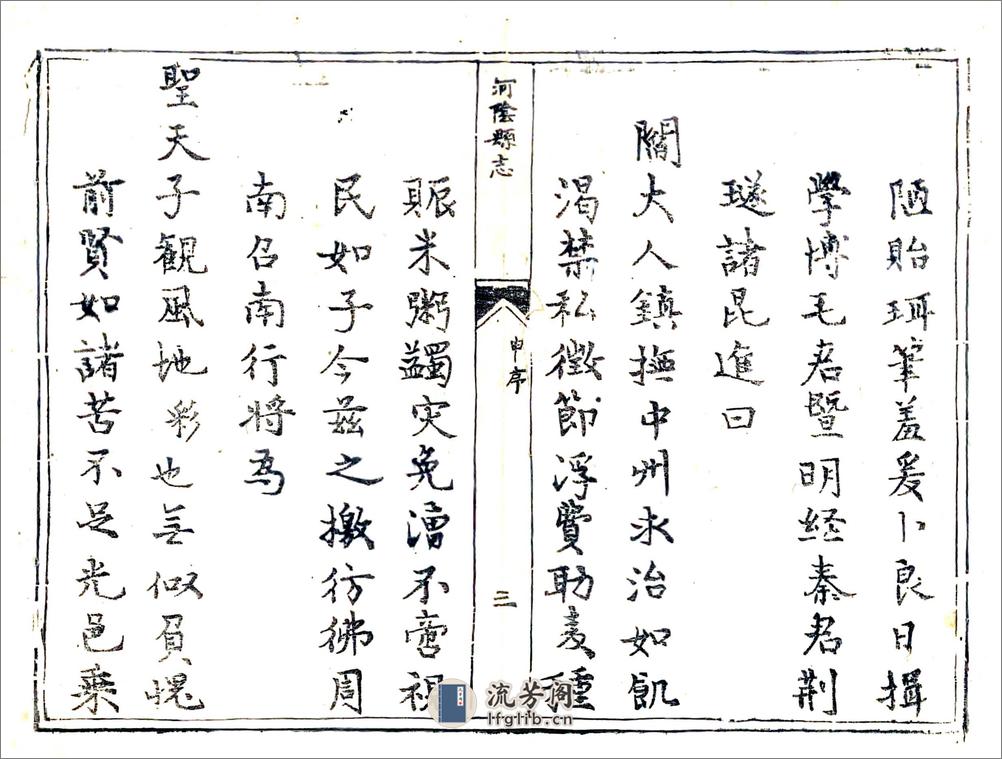 陋貽珥筆羞爰卜良日揖
學博毛君暨明經秦君荆
璲諸昆進曰
閻大人鎮撫中州求治如飢
渴禁私徵節浮費助麦種
河陰縣志
申序
三
賑米粥蠲灾免漕不啻視
民如子今兹之檄彷彿周
南召南行将為
聖天子觀風地彩也無似負愧
前賢如諸苦不足光邑乗
流芳阁
lfglib.cn